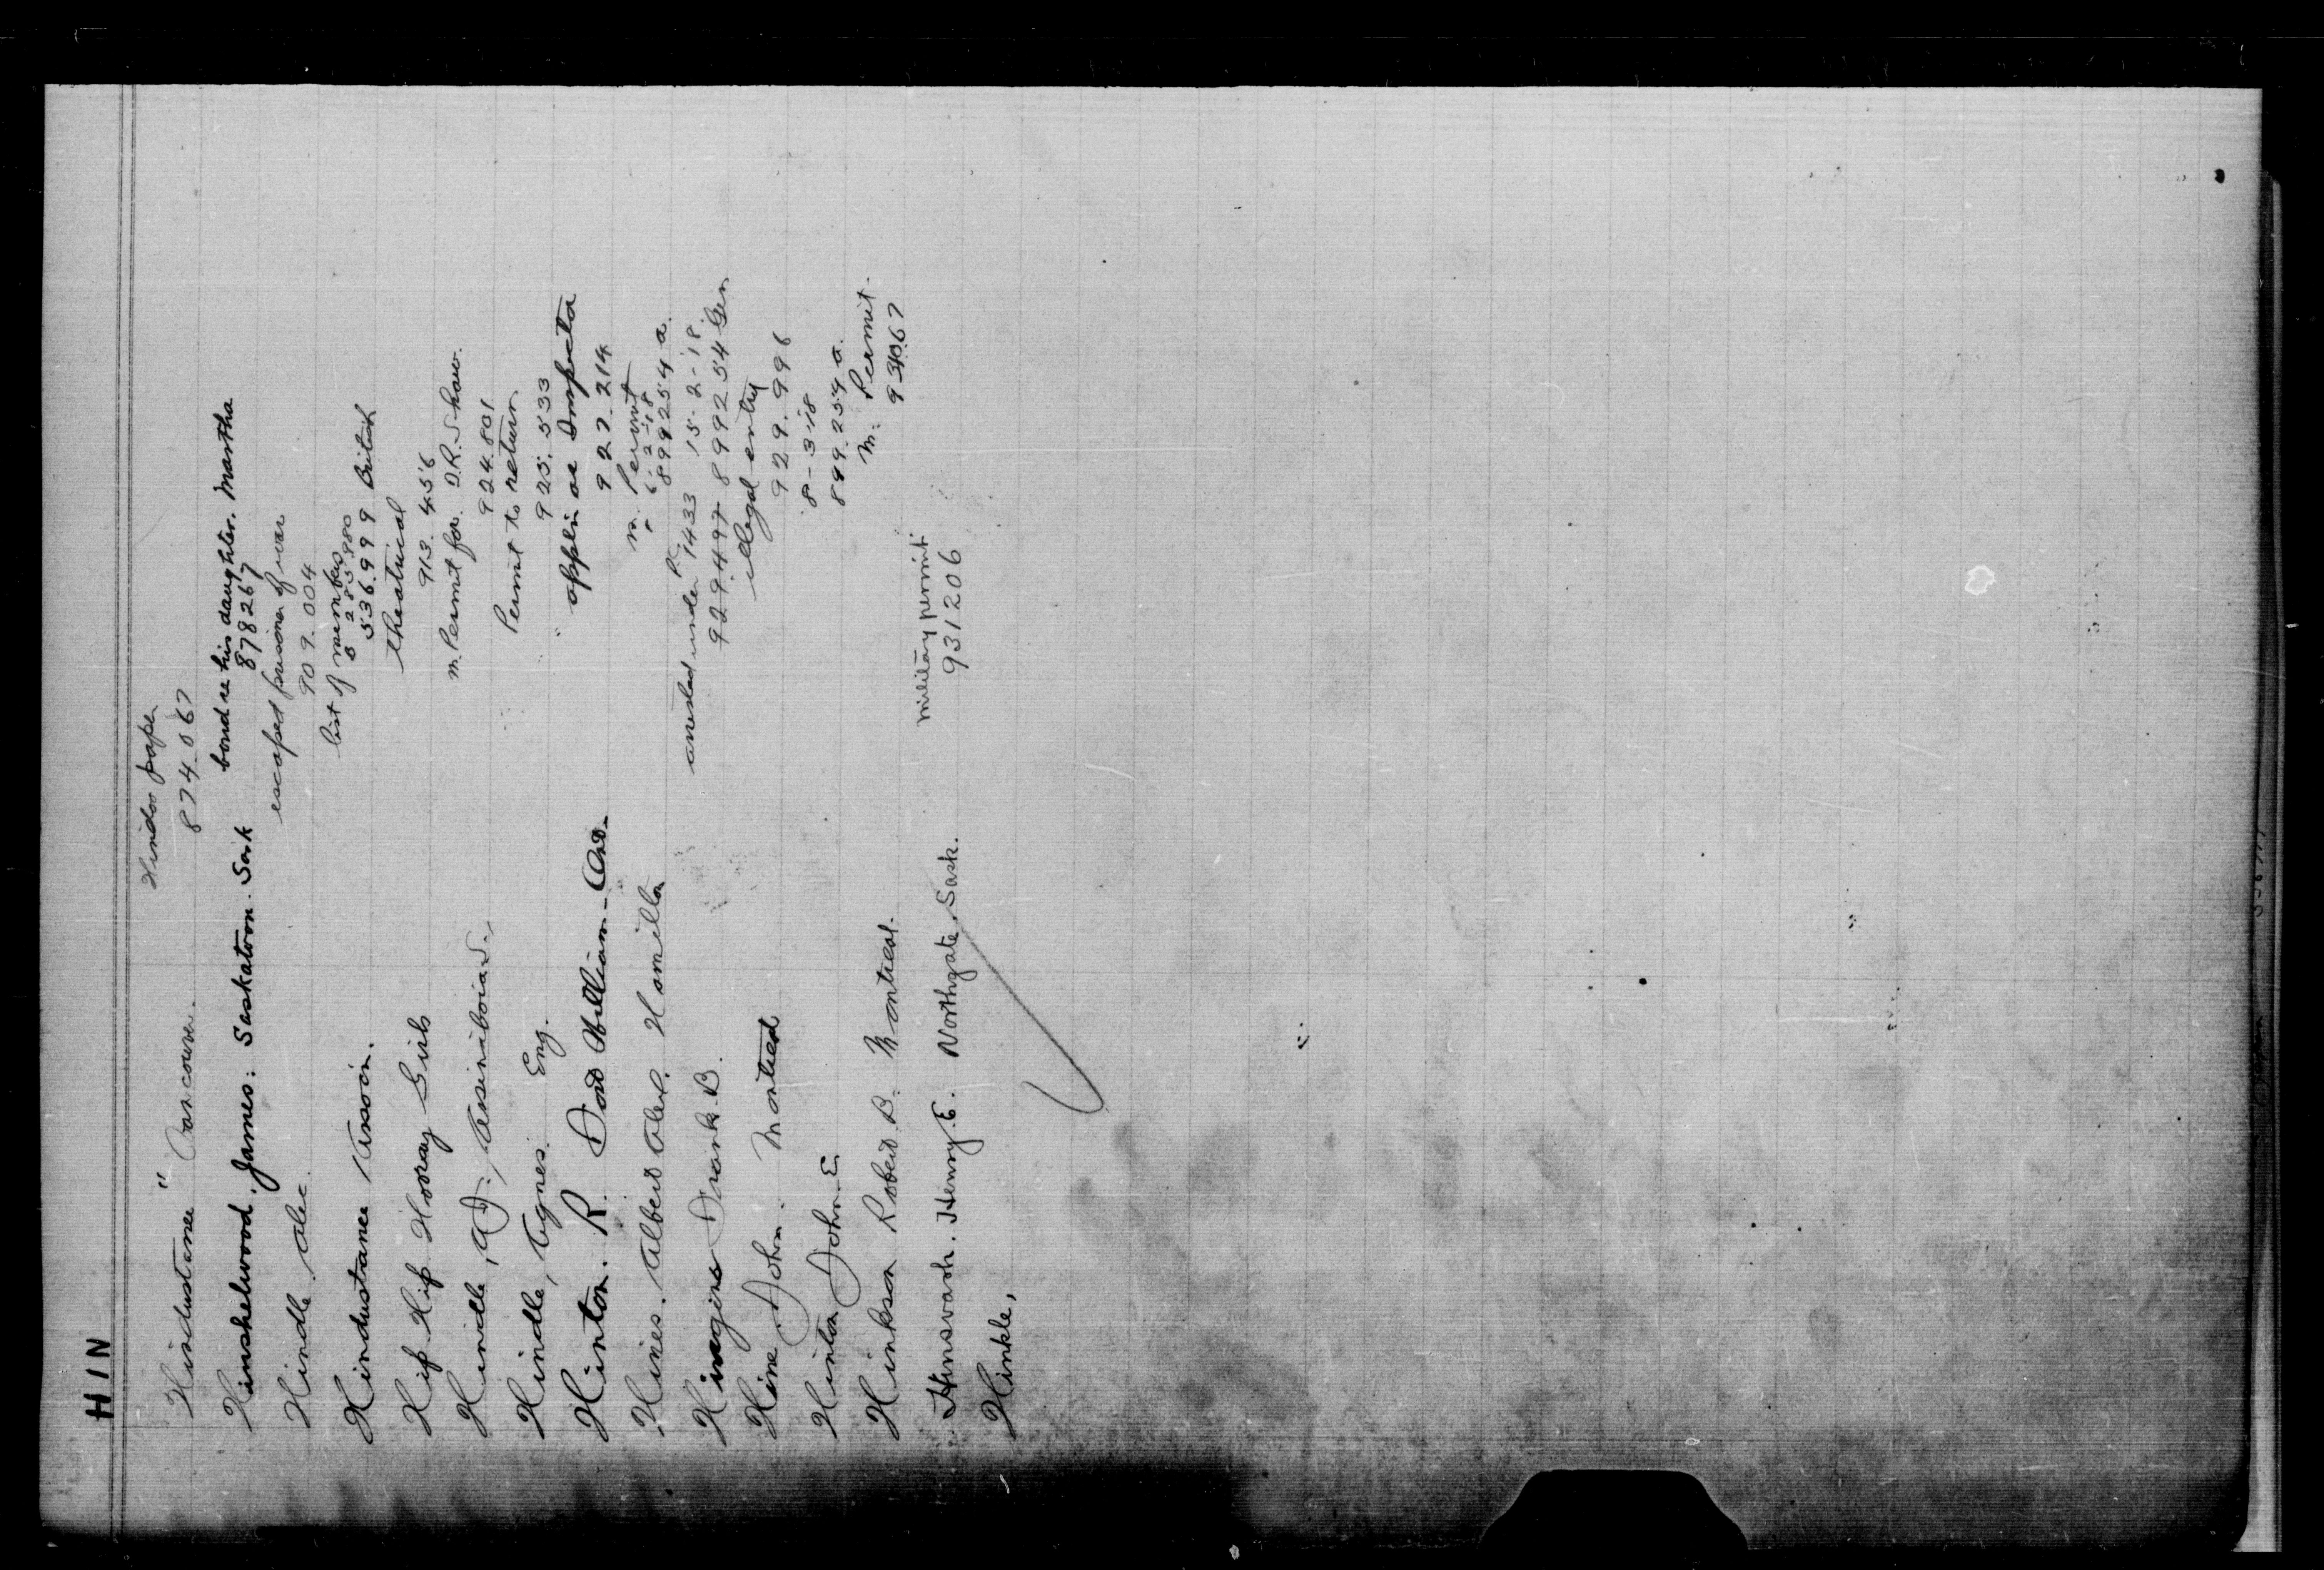 HIN
Hindoo paper
"Hindustanee" Vancouver. 874.067
Hinshelwood. James: Saskatoon. Sask bond re his daughter. Martha
878267
Hindle. Alec escaped prisoner of war
909.004
list of members
528.5880
Hindustanee Assocn. 536999 British
Hip Hip Hooray Girls theatrical
913.456
Hindle, A.J., Assiniboia S., m. Permit for D.R. Shaw.
924.801
Hindle, Agnes. Eng. Permit to return.
925.533
Hinton. R. Fort William - Ont. appli as Inspector
927.214
Hines. Albert Alex. Hamilton m. Permit
6-2-18
899254 a.
Hinegins Frank B. arrested under P.C. 1433 15-2-18.
929.497 899254 Gen
Hine John. Montreal illegal entry
929.996
Hinton John E. 8-3-18
899.254 a.
Hinkson Robert B. Montreal. m. Permit.
934067
Hinsvark. Henry. E. Northgate, Sask. military permit
931206
Hinkle,